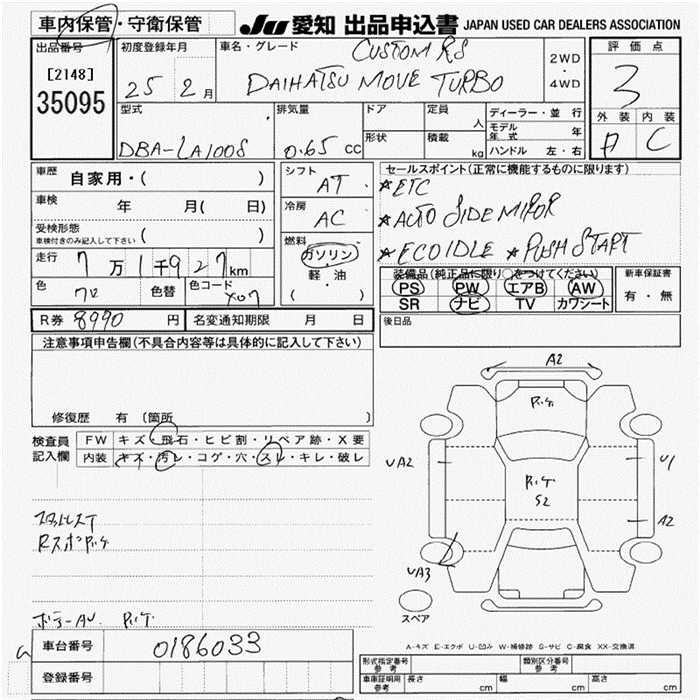 車内保管・守衛保管 JU 愛知 出品申込書 JAPAN USED CAR DEALERS ASSOCIATION
出品番号 初度登録年月 車名・グレード CUSTOM RS 2WD・4WD 評価点
[2148] 25 2月 DAIHATSU MOVE TURBO 3
35095
型式 排気量 ドア 定員 人 ディーラー・並行 外装 内装
DBA-LA100S 0.65 cc 形状 積載 kg モデル年式 年 A C
ハンドル 左・右
車歴 自家用・( ) シフト AT セールスポイント(正常に機能するものに限ります)
車検 年 月( 日) 冷房 AC ★ETC
受検形態 ( ) ★AUTO SIDE MIROR
車検付きのみ記入して下さい
走行 7万1千927km 燃料 ガソリン ★ECOIDLE ★PUSH START
色 色替 色コード X07 軽・油 ( )
装備品(純正品に限り○をつけてください) 新車保証書
PS PW エアB AW 有・無
SR ナビ TV カワシート
R券 8990 円 名変通知期限 月 日 後日品
注意事項申告欄(不具合内容等は具体的に記入して下さい)
修復歴 有 (箇所
検査員記入欄 FW キズ・飛石・ヒビ割・リペア跡・X要
内装 キズ・汚レ・コゲ・穴・スレ・キレ・破レ
A2
UA2
U1
S2
A2
UA3
スペア
A-キズ E-エクボ U-凹み W-補修跡 S-サビ C-腐食 XX-交換済
車台番号 0186033
登録番号
形式指定番号 参考 類別区分番号 参考
車庫証明用 参考 長さ cm 幅 cm 高さ cm